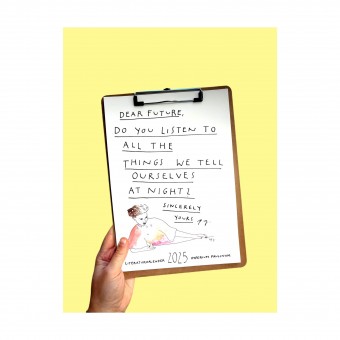 DEAR FUTURE,
DO YOU LISTEN TO
ALL THE
THINGS WE TELL
OURSELVES
AT NIGHT?
SINCERELY
YOURS
LITERATURKALENDER 2025